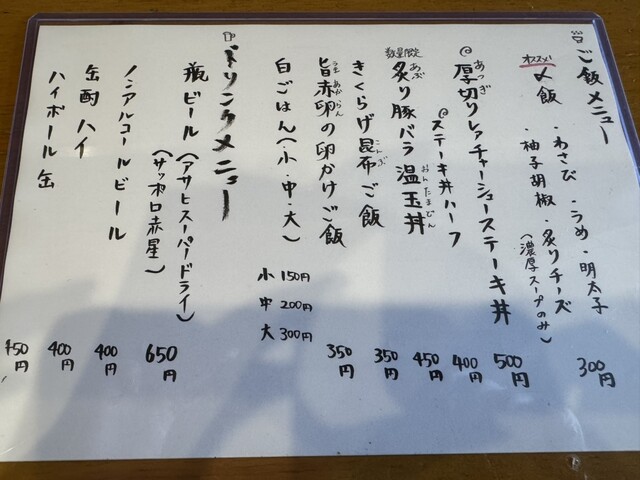 ご飯メニュー
オススメ!
〆飯
・わさび・うめ・明太子
・柚子胡椒・炙りチーズ
(濃厚スープのみ)
300円
@厚切りレアチャーシューステーキ丼
あつぎ
500円
@ステーキ丼ハーフ
400円
数量限定
炙り豚バラ温玉丼
あぶ
おんたまどん
450円
きくらげ昆布ご飯
こんぶ
350円
旨赤卵の卵かけご飯
うまあからん
350円
白ごはん(小・中・大)
小 150円
中 200円
大 300円
ドリンクメニュー
瓶ビール(アサヒスーパードライ)
(サッポロ赤星)
650円
ノンアルコールビール
400円
缶酎ハイ
400円
ハイボール缶
450円